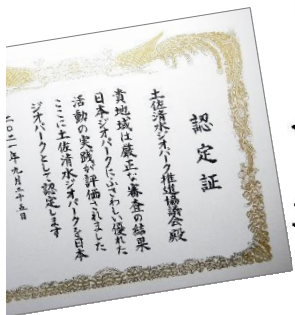 認定証
土佐清水ジオパーク推進協議会殿
貴地域は厳正な審査の結果
日本ジオパークにふさわしい優れた
活動の実践が評価されました
ここに土佐清水ジオパークを日本
ジオパークとして認定します
二〇二一年九月二十五日